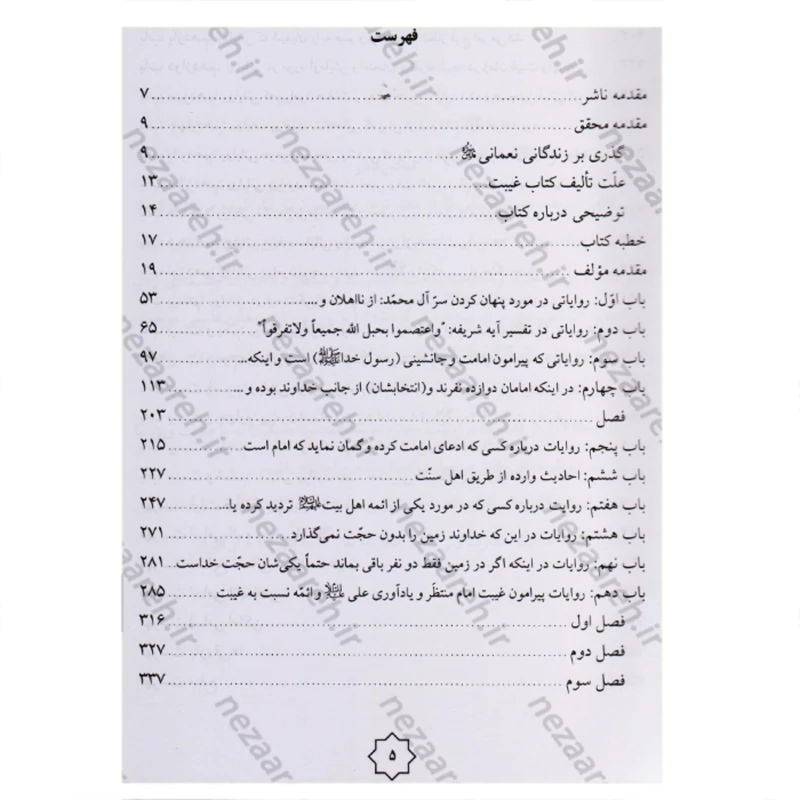 فهرست
مقدمه ناشر ۷
مقدمه محقق ۹
گذری بر زندگانی نعمانی ۹
علّت تألیف کتاب غیبت ۱۳
توضیحی درباره کتاب ۱۴
خطبه کتاب ۱۷
مقدمه مؤلف ۱۹
باب اوّل: روایاتی در مورد پنهان کردن سرّ آل محمّد: از نااهلان و ... ۵۳
باب دوم: روایاتی در تفسیر آیه شریفه: "واعتصموا بحبل الله جمیعاً ولاتفرقواً" ۶۵
باب سوم: روایاتی که پیرامون امامت و جانشینی (رسول خداﷺ) است و اینکه... ۹۷
باب چهارم: در اینکه امامان دوازده نفرند و(انتخابشان) از جانب خداوند بوده و ... ۱۱۳
فصل ۲۰۳
باب پنجم: روایات درباره کسی که ادعای امامت کرده و گمان نماید که امام است ۲۱۵
باب ششم: احادیث وارده از طریق اهل سنّت ۲۲۷
باب هفتم: روایت درباره کسی که در مورد یکی از ائمه اهل بیت تردید کرده یا... ۲۴۷
باب هشتم: روایات در این که خداوند زمین را بدون حجّت نمی‌گذارد ۲۷۱
باب نهم: روایات در اینکه اگر در زمین فقط دو نفر باقی بماند حتماً یکی‌شان حجّت خداست ۲۸۱
باب دهم: روایات پیرامون غیبت امام منتظَر و یادآوری علی و ائمّه نسبت به غیبت ۲۸۵
فصل اول ۳۱۶
فصل دوم ۳۲۷
فصل سوم ۳۳۷
۵
nezaareh.ir